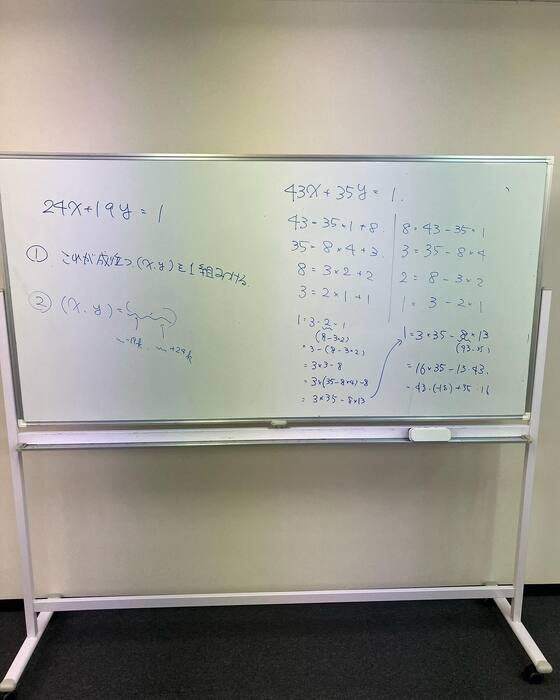 24x+19y=1
① これが成立つ(x,y)を1組みつける
② (x,y)=
43x+35y=1.
43=35×1+8
35=8×4+3
8=3×2+2
3=2×1+1
8=43-35×1
3=35-8×4
2=8-3×2
1=3-2×1
1=3-2×1
(8-3×2)
=3-(8-3×2)
=3×3-8
=3×(35-8×4)-8
=3×35-8×13
1=3×35-8×13
(43-35)
=16×35-13·43.
=43·(-13)+35·16